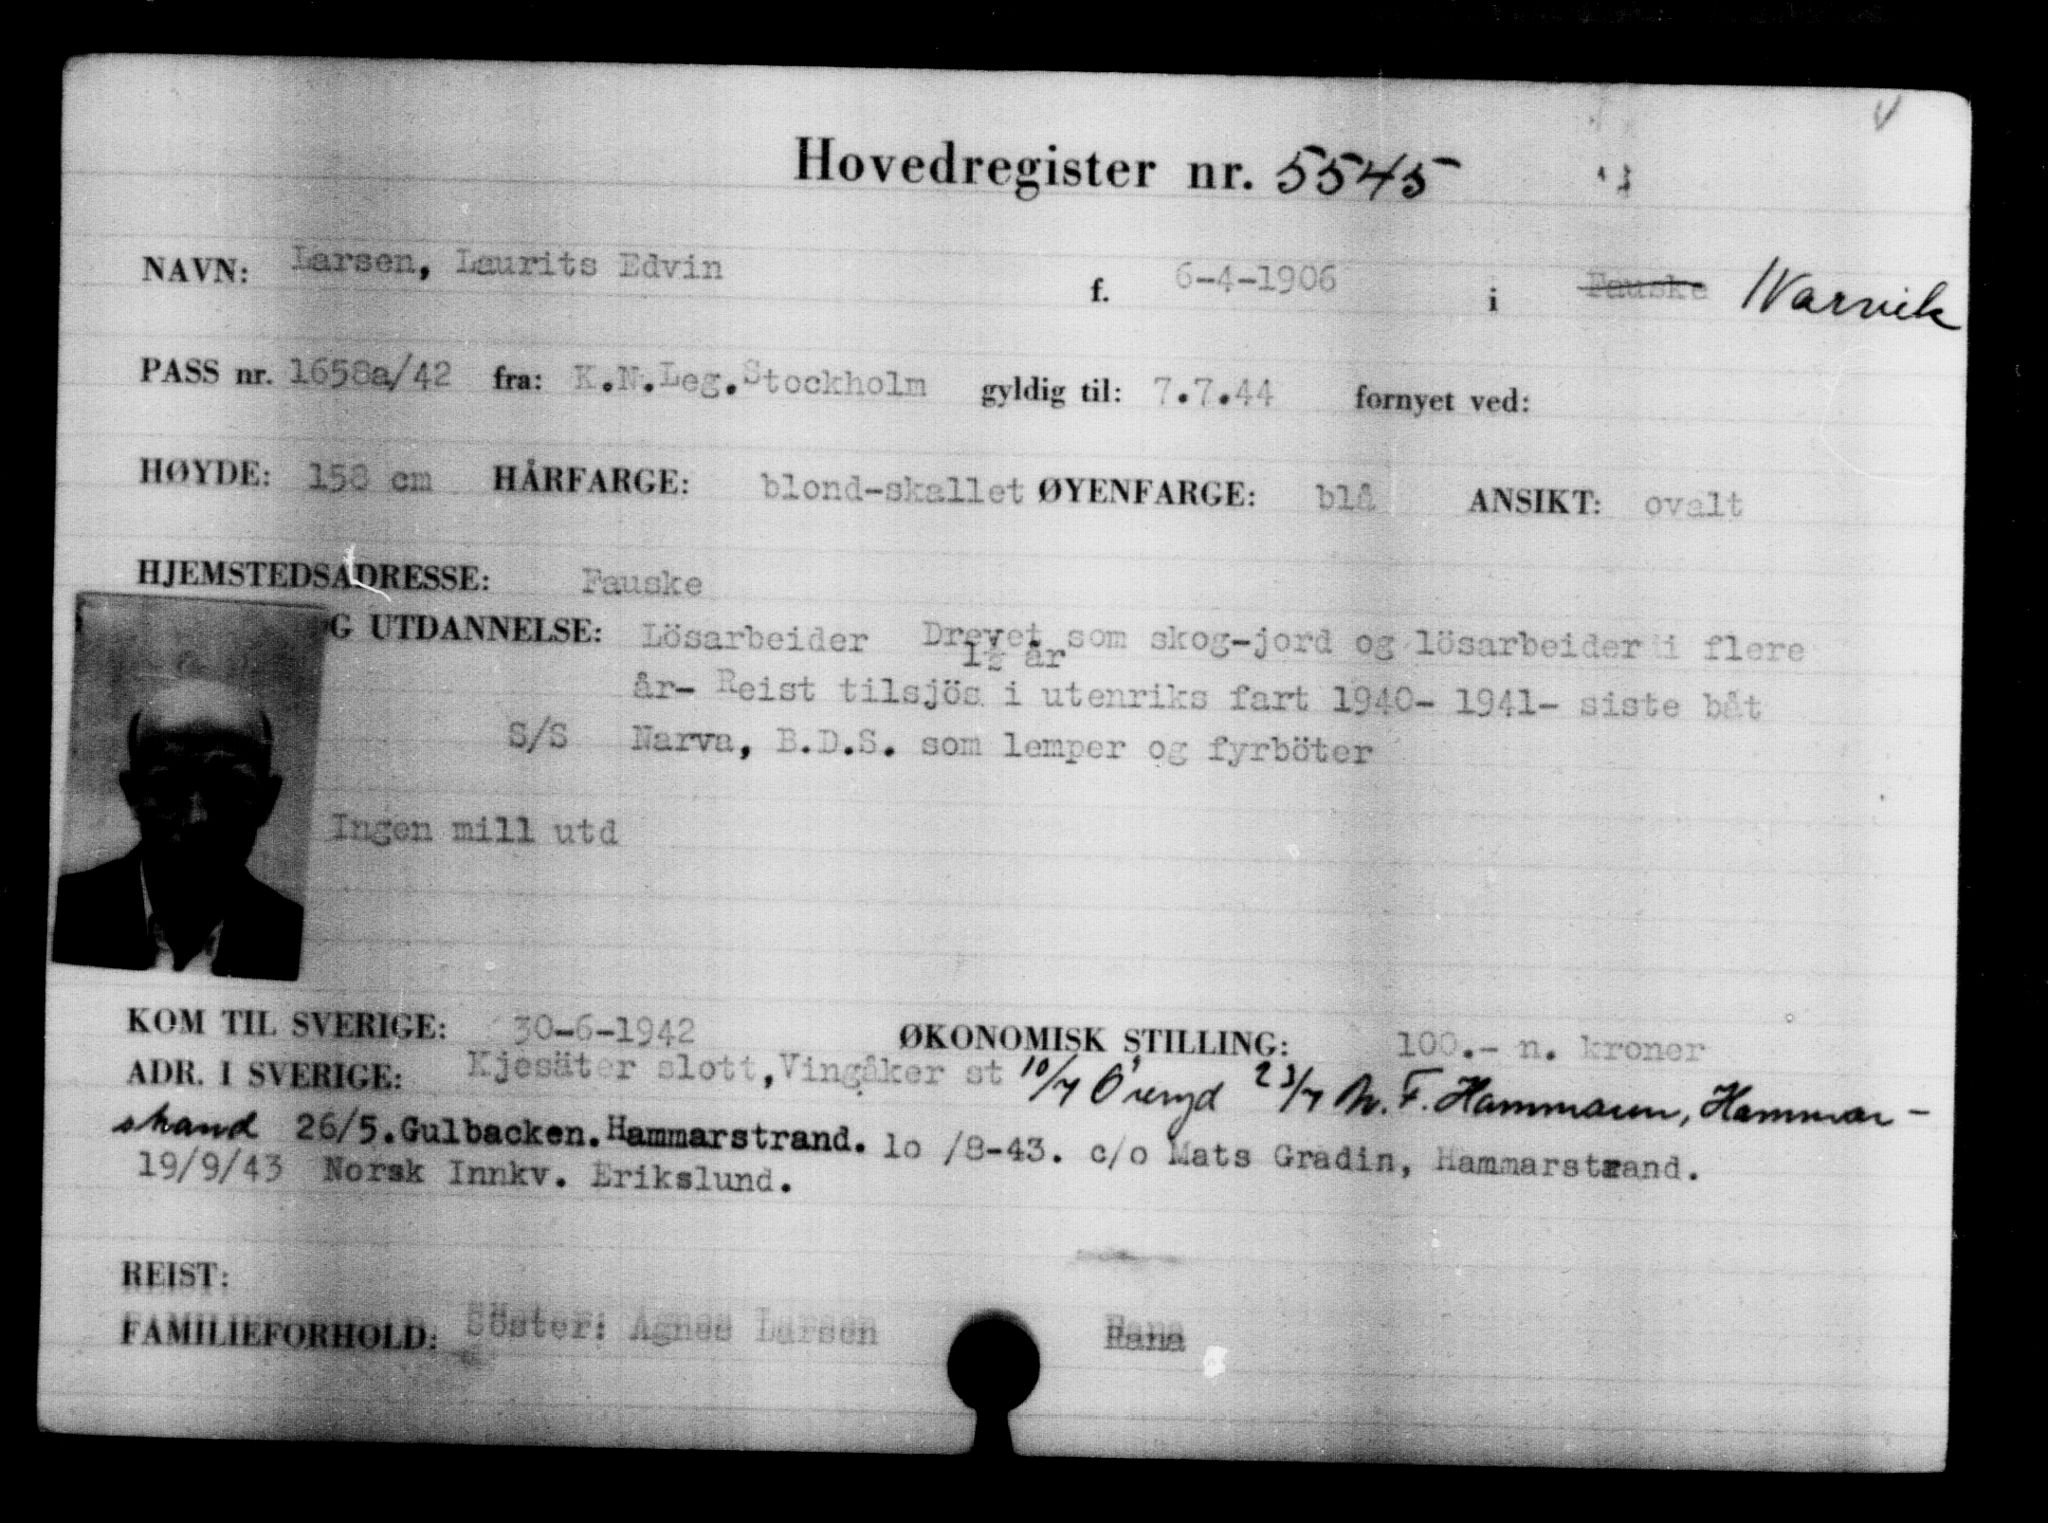 Hovedregister nr. 5545
NAVN: Larsen, Laurits Edvin f. 6-4-1906 i Fauske Narvik
PASS nr. 1658a/42 fra: K.N.Leg.Stockholm gyldig til: 7.7.44 fornyet ved:
HØYDE: 158 cm HÅRFARGE: blond-skallet ØYENFARGE: blå ANSIKT: ovalt
HJEMSTEDSADRESSE: Fauske
G UTDANNELSE: Lösarbeider Drevet som skog-jord og lösarbeider i flere
1½ år
år- Reist tilsjös i utenriks fart 1940- 1941- siste båt
S/S Narva, B.D.S. som lemper og fyrböter
Ingen mill utd
KOM TIL SVERIGE: 30-6-1942 ØKONOMISK STILLING: 100.- n. kroner
ADR. I SVERIGE: Kjesäter slott, Vingåker st 10/7 Öreryd 23/7 F. Hammaren, Hammar-
strand 26/5. Gulbacken. Hammarstrand. lo /8-43. c/o Mats Gradin, Hammarstrand.
19/9/43 Norsk Innkv. Erikslund.
REIST:
FAMILIEFORHOLD: Söster: Agnes Larsen Rana